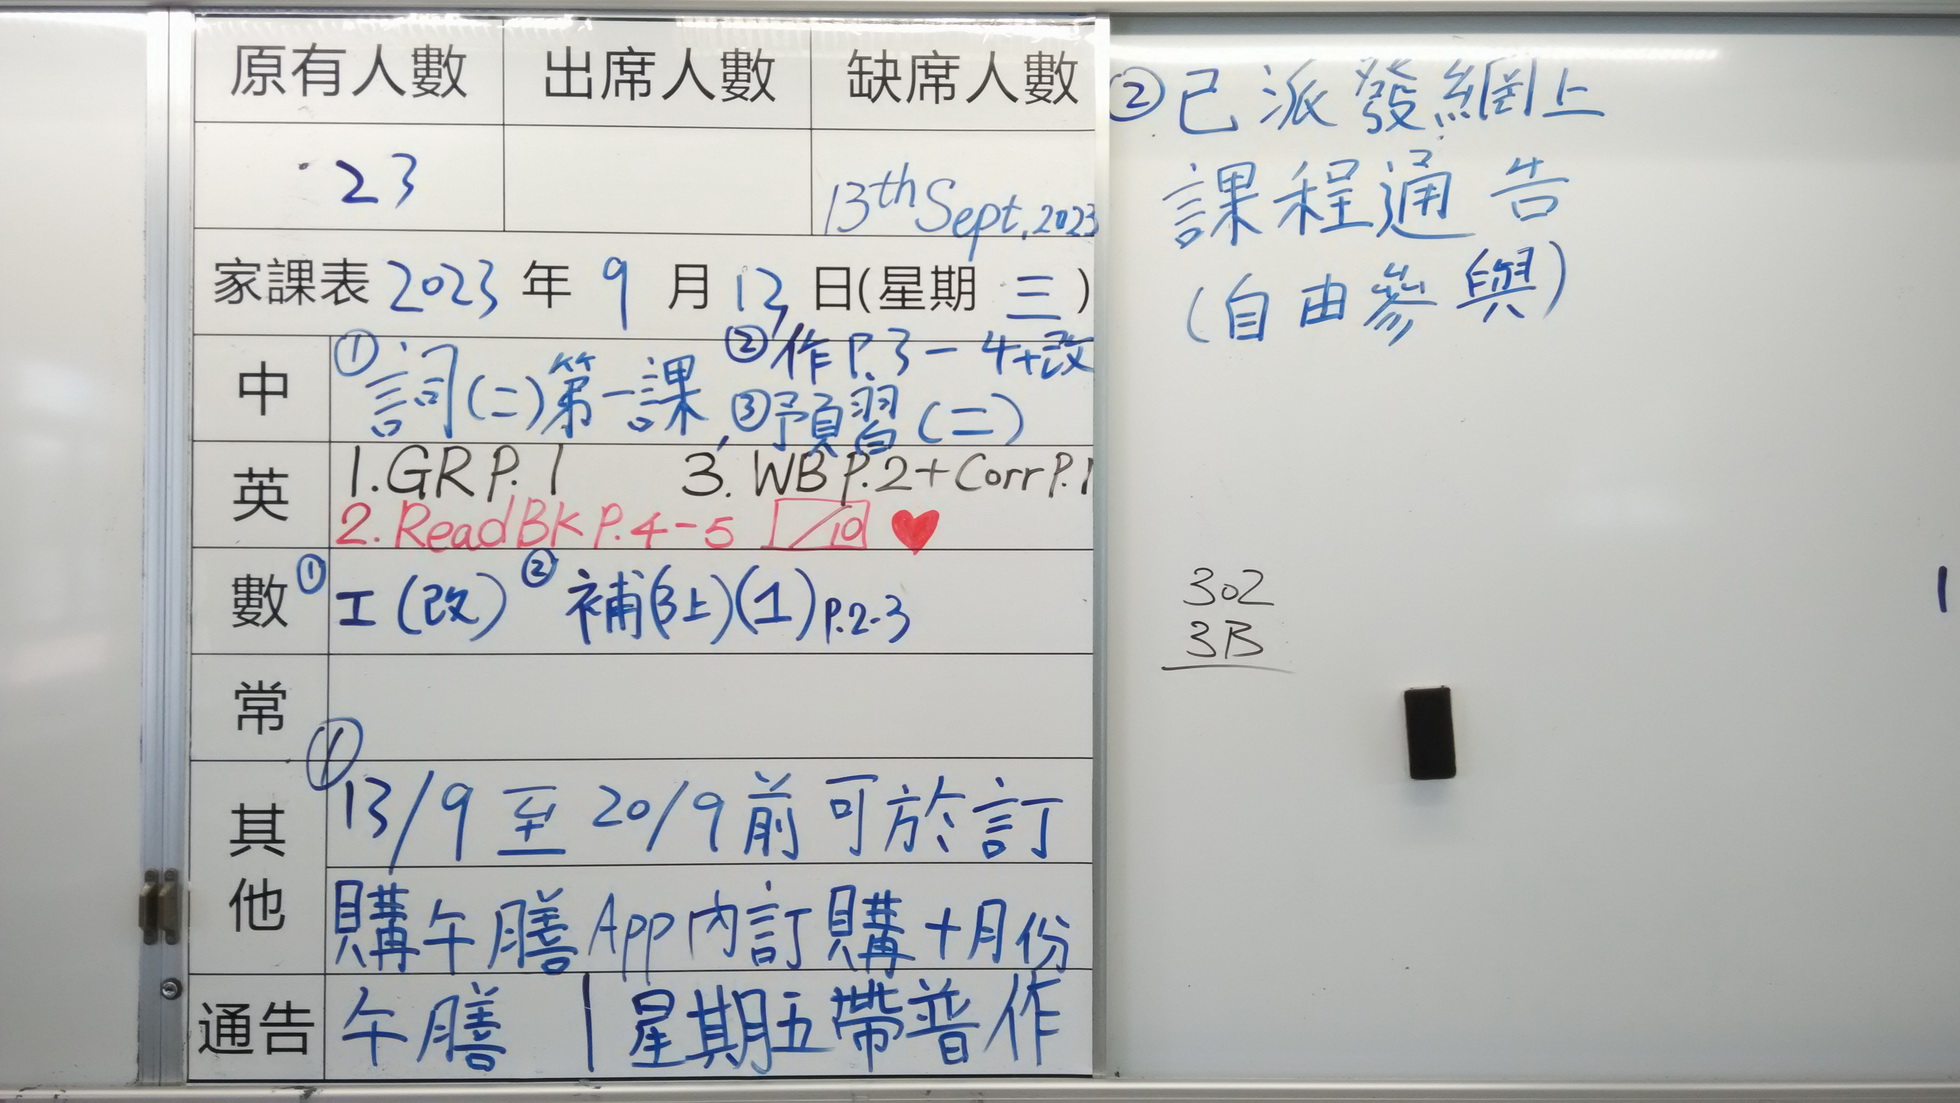 原有人數 出席人數 缺席人數
23 13th Sept, 2023
家課表 2023 年 9 月 13 日(星期 三 )
中 ①詞(二)第一課, ②作P.3-4+改
③預習(二)
英 1. GR P. 1 3. WB P.2+Corr P.1
2. Read BK P.4-5 /10 ♥
數 ①工(改) ②補(3上)(1)P.2-3
常
其他 ①13/9至20/9前可於訂
購午膳App內訂購十月份
通告 午膳 | 星期五帶普作
②已派發網上
課程通告
(自由參與)
302
3B